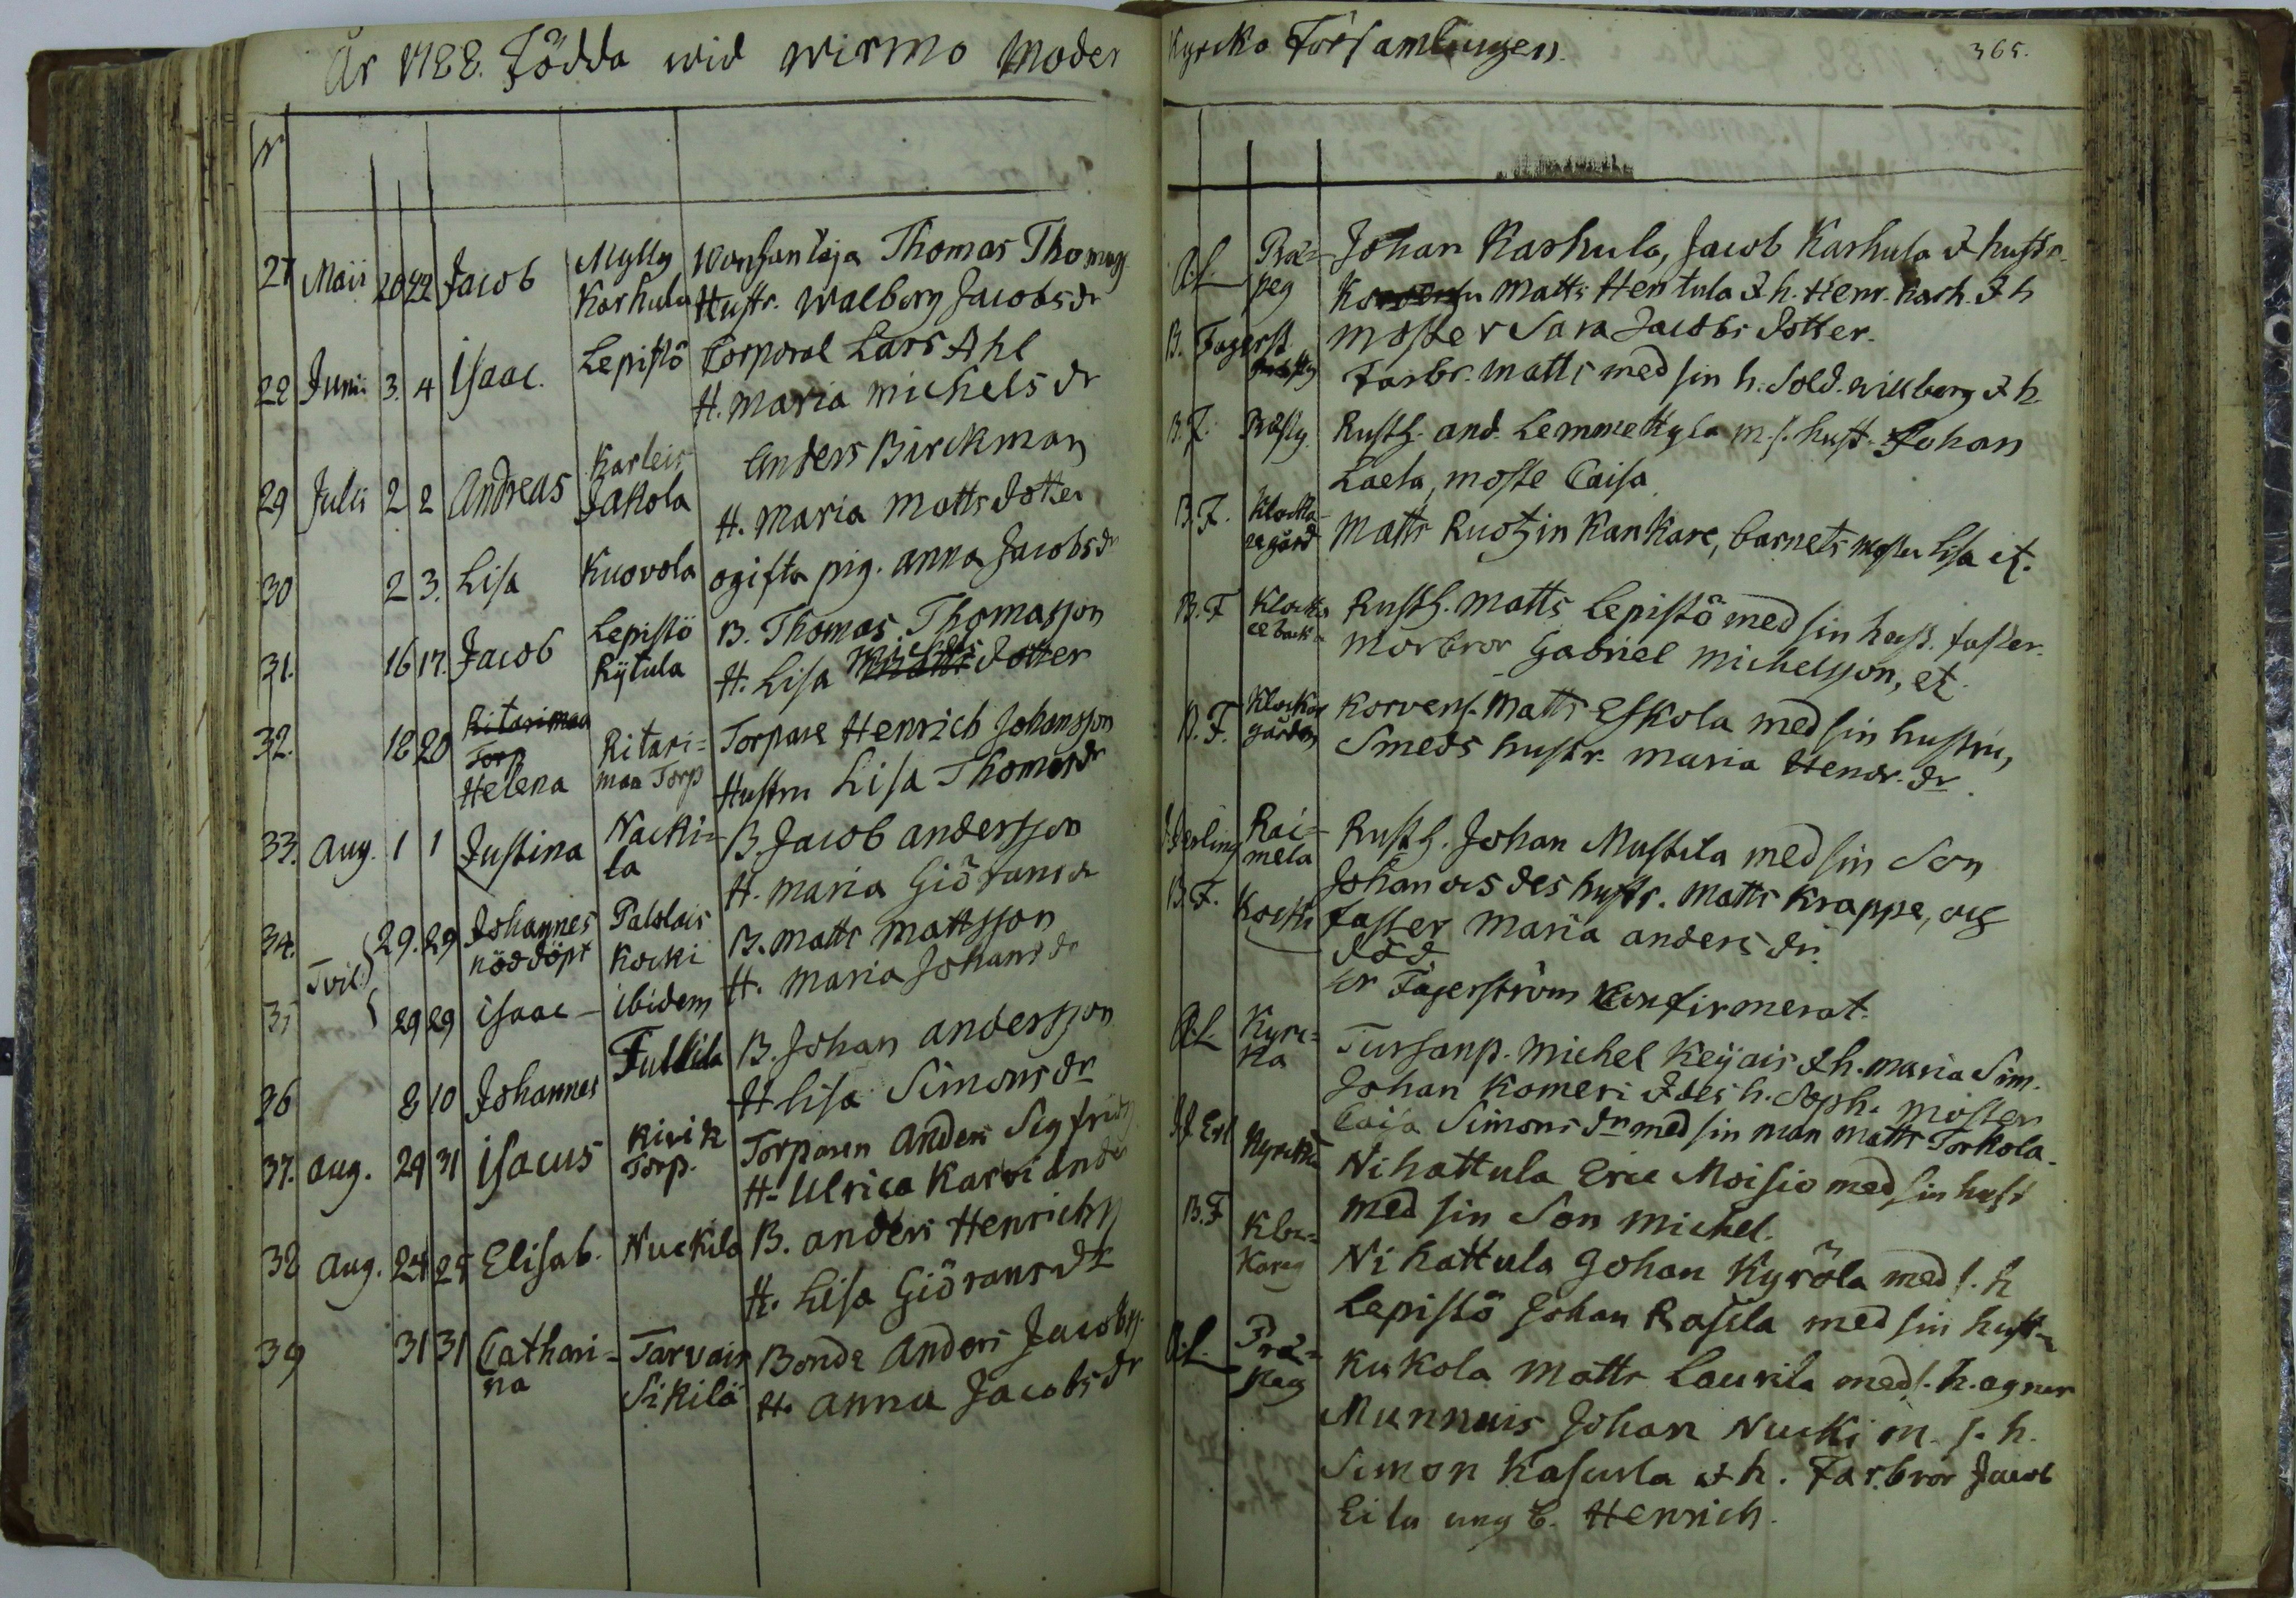 År 1788. Födda wid wirmo Moder
N
27 Maii 20 22 Jacob Mylly Thomas
Karhula Hustr. Walborg Jacobs dr
28 Junii 3. 4 Isaac. Lepistö Corporal Lars Ahl
H. Maria Michels dr
29 Julii 2 2 Andreas Karleis Anders Birckman
Jakola H. Maria Matts dotter
30 2 3. Lisa Kuovola ogifta pig. Anna Jacobs dr
31. 16 17. Jacob Lepistö B. Thomas Thomasson
Rytula H. Lisa Michels dotter
32. 18 20 Ritarimaa Ritari= Torpare Henrich Johansson
Torp maa Torp Hustru Lisa Thomas dr
Helena
33. Aug. 1 1 Justina Nacki= B. Jacob Andersson
la H. Maria Giörans dr
34. 29. 29 Johannes Palolais B. Matts Mattsson
Tvil. nöddöpt Kocki H. Maria Johans dr
35 29 29 Isaac ibidem
36 8 10 Johannes Tulkila B. Johan Andersson
H Lisa Simons dr
37. Aug. 29 31 Isacus Kivik Torparen Anders Sigfrids
Torp. H. Ulrica Karvi
38 Aug. 24 25 Elisab. Nuckila B. Anders Henrichs
H. Lisa Giörans dr
39 31 31 Cathari= Tarvais Bonde Anders Jacobs
na Sikilä H. Anna Jacobs dr
Kyrcko Församlingen.
365.
A.L. Johan Karhula, Jacob Karhula & hustr.
Matts Hentula & h. Henr. Karh. & h
B. Fagerst moster Sara Jacobs dotter.
Farbr. Matts med sin h. Sold. Willberg & h.
B.F. Rusth. And. Lemmetkyla m. s. hust. Johan
Laela, moste Caisa
B.F. Klocka= Matts Ruotzin Kankare, barnets moster Lisa etc.
regård
B.F Klocka Rusth. Matts Lepistö med sin hust. faster.
morbror Gabriel Michelsson, etc.
B.F. Klockar Korvens. Matts Eskola med sin hustru,
gården Smeds hustr. Maria Hendr. dr.
Rai= Rusth. Johan Mustila med sin Son
mela Johan och des hustr. Matts Krappe, och
B.F. Kocki faster Maria Anders dr.
död.
hr Fagerström Confirmerat.
A.L. Kyrc= Michel Keijais & h. Maria Sim.
ka Johan Komeri & des h. Soph. moster
Caisa Simons dr med sin man Matts Torkola.
Nihattula Eric Moisio med sin hust
B.F med sin Son Michel.
Nihattula Johan Kyrölä med s. h
Lepistö Johan Rasila med sin hustr.
A.L. Kukola Matts Laurila med s. h. Agnes
Munnuis Johan Nucki m. s. h.
Simon Kasurla & h. Farbror Jacob
Henrich.